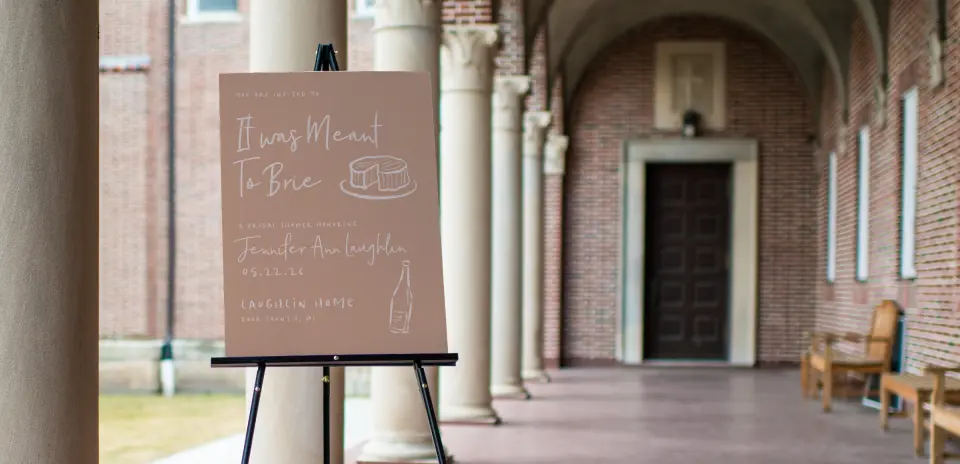 YOU ARE INVITED TO
It was Meant
To Brie
A BRIDAL SHOWER HONORING
Jennifer Ann Laughlin
05.22.26
LAUGHLIN HOME